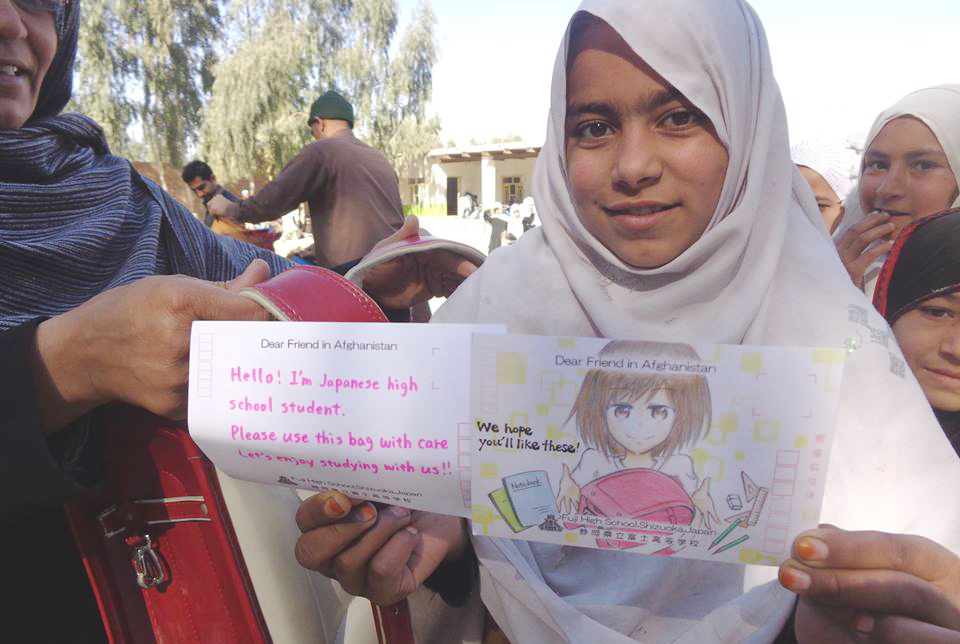 Dear Friend in Afghanistan
Hello! I'm Japanese high
school student.
Please use this bag with care
Let's enjoy studying with us!!
Fuji High School,Shizuoka,Japan
静岡県立富士高等学校
Dear Friend in Afghanistan
We hope
you'll like these!
Notebook
Fuji High School,Shizuoka,Japan
静岡県立富士高等学校
郵便はがき